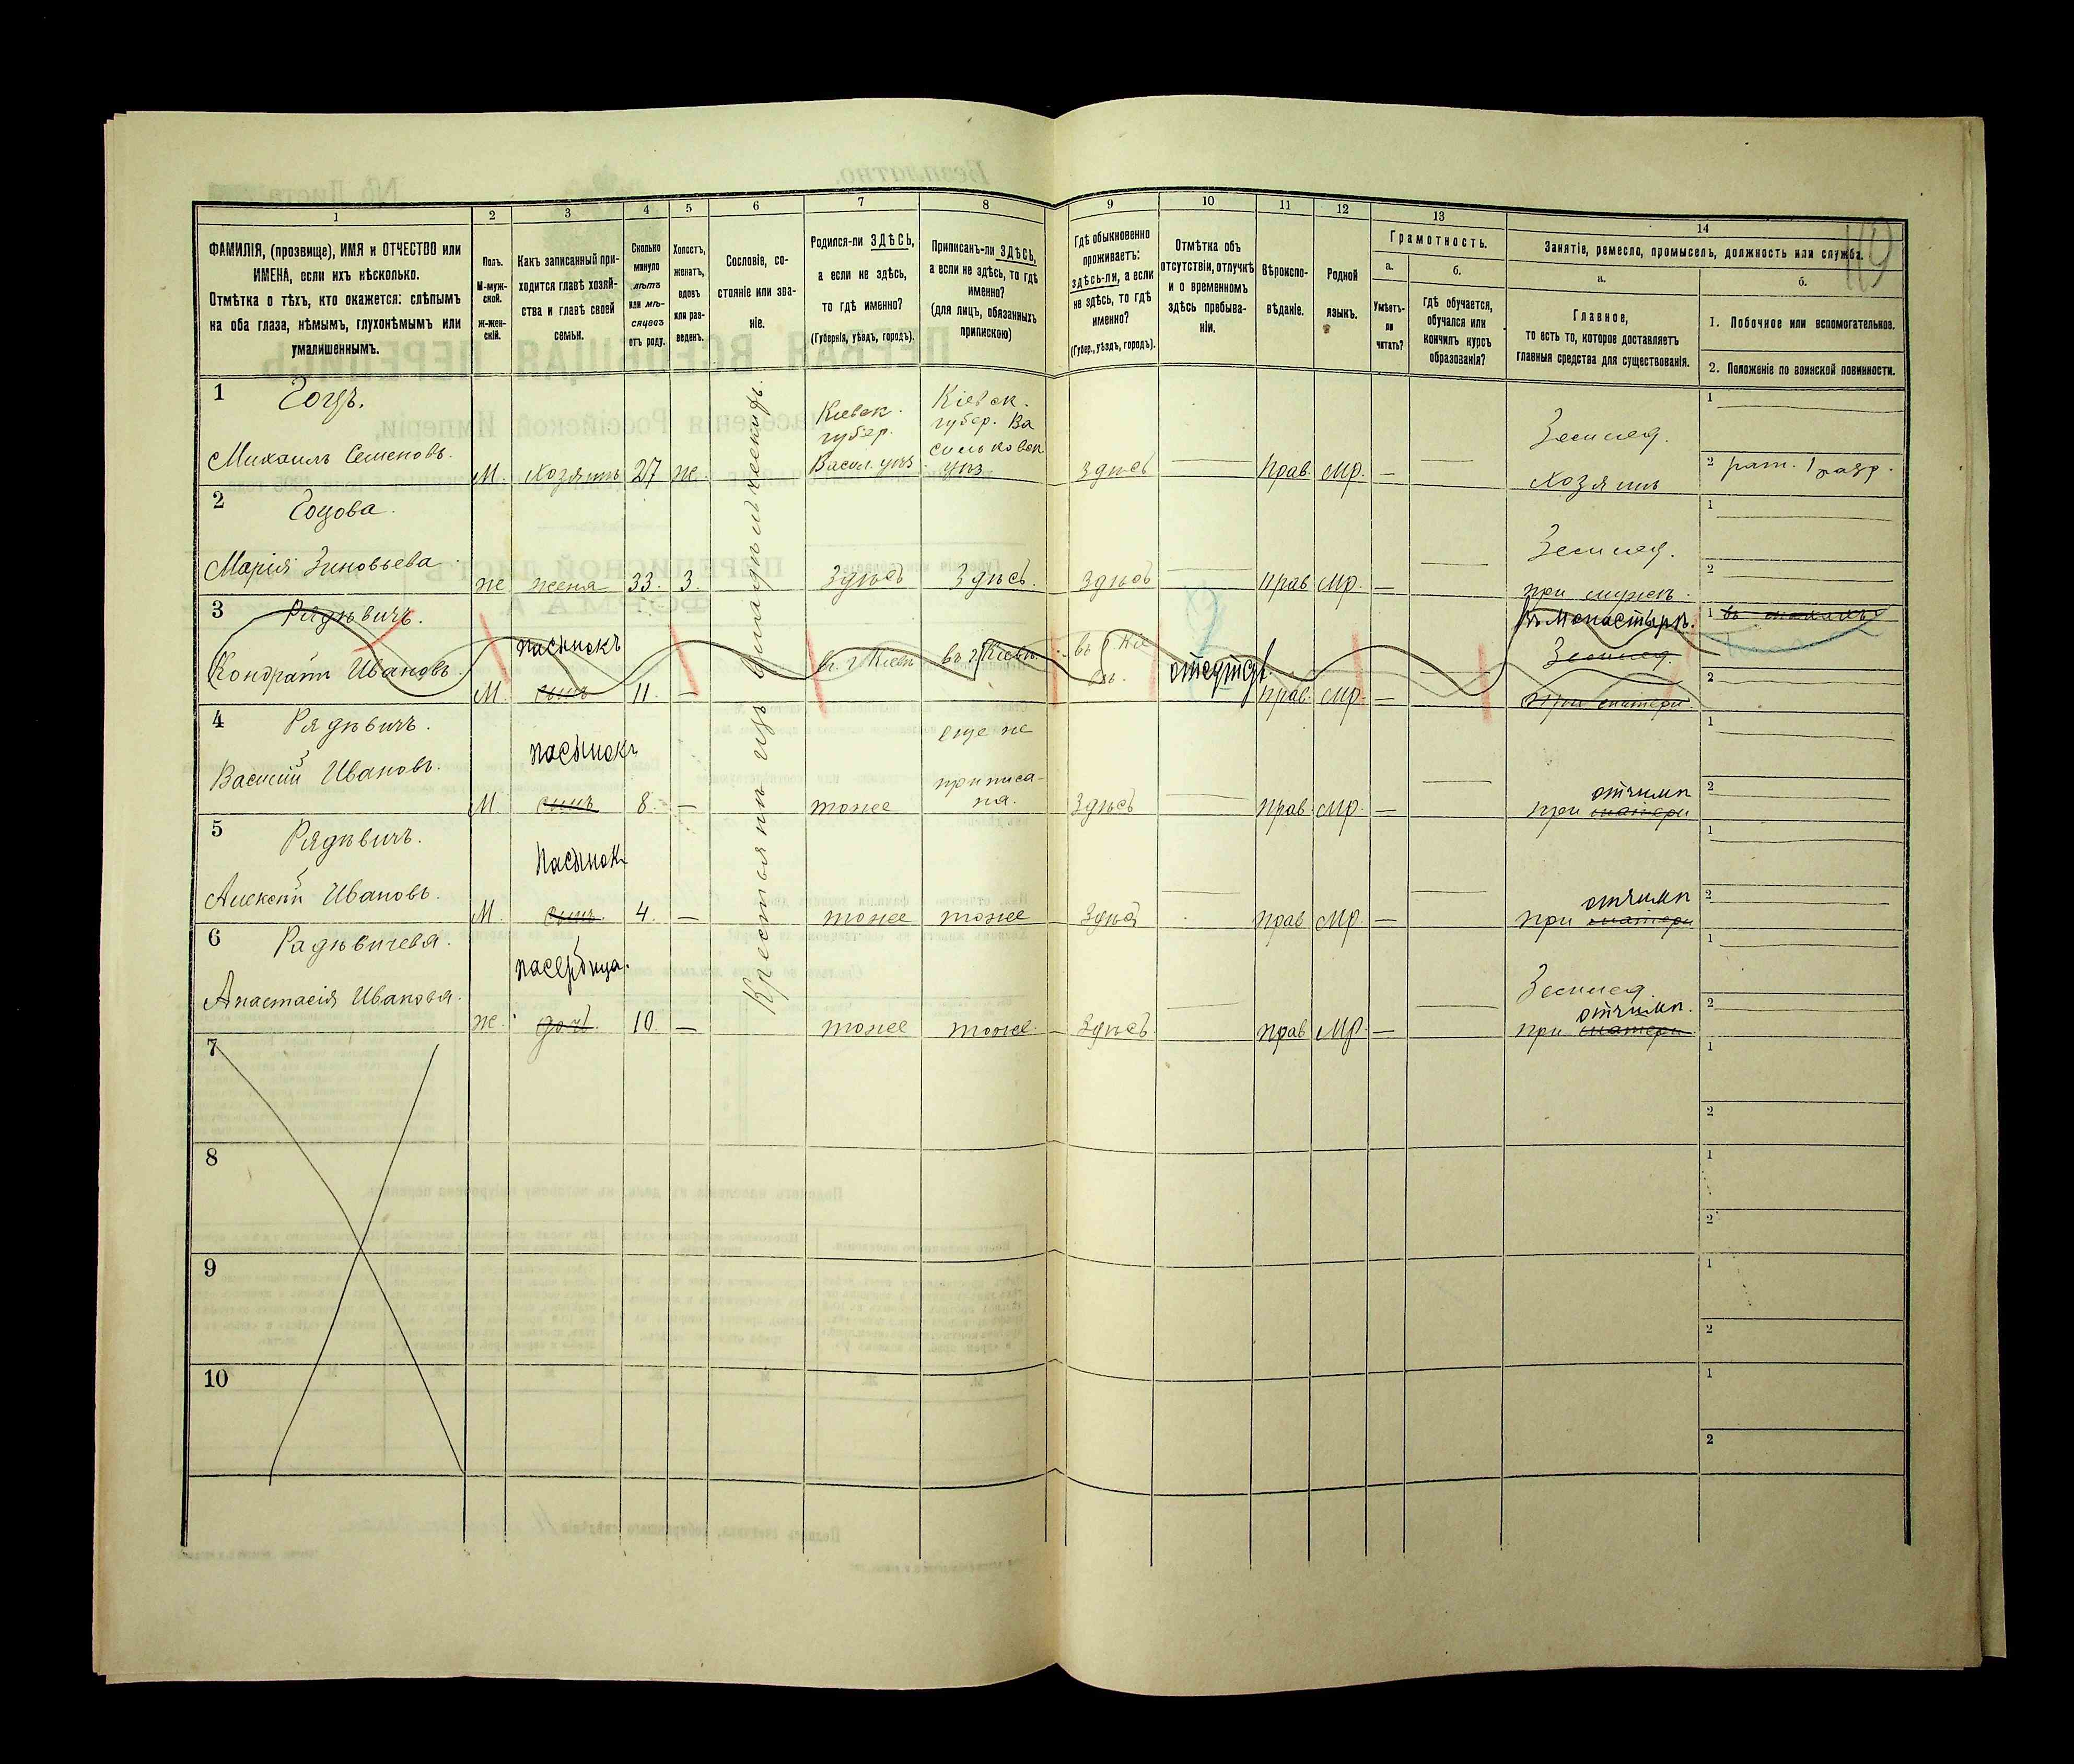 1 2 3 4 5 6 7 8 9 10 11 12 13 14
ФАМИЛІЯ, (прозвище), ИМЯ и ОТЧЕСТВО или
ИМЕНА, если ихъ нѣсколько.
Отмѣтка о тѣхъ, кто окажется: слѣпымъ
на оба глаза, нѣмымъ, глухонѣмымъ или
умалишеннымъ.
Полъ.
М-муж-
ской.
Ж-жен-
скій.
Какъ записанный при-
ходится главѣ хозяй-
ства и главѣ своей
семьи.
Сколько
минуло
лѣтъ
или мѣ-
сяцевъ
отъ роду.
Холостъ,
женатъ,
вдовъ
или раз-
веденъ.
Сословіе, со-
стояніе или зва-
ніе.
Родился-ли ЗДѢСЬ,
а если не здѣсь,
то гдѣ именно?
(Губернія, уѣздъ, городъ).
Приписанъ-ли ЗДѢСЬ,
а если не здѣсь, то гдѣ
именно?
(для лицъ, обязанныхъ
припискою)
Гдѣ обыкновенно
проживаетъ:
здѣсь-ли, а если
не здѣсь, то гдѣ
именно?
(Губер., уѣздъ, городъ).
Отмѣтка объ
отсутствіи, отлучкѣ
и о временномъ
здѣсь пребыва-
ніи.
Вѣроиспо-
вѣданіе.
Родной
языкъ.
Грамотность.
а.
Умѣетъ-
ли
читать?
б.
Гдѣ обучается,
обучался или
кончилъ курсъ
образованія?
Занятіе, ремесло, промыселъ, должность или служба.
а.
Главное,
то есть то, которое доставляетъ
главныя средства для существованія.
б.
1. Побочное или вспомогательное.
2. Положеніе по воинской повинности.
119
Крестьянинъ изъ
1 Гоцъ.
Михаилъ Семеновъ.
М. хозяинъ 27 ж.
Кіевск.
губер.
Васил. уѣз.
Кіевск.
губер. Ва
сильковск.
уѣз.
здѣсь — прав мр. — —
Землед.
хозяинъ
1
2 рат. 1 разр.
2 Гоцова.
Марія Зиновьева
ж жена 33. 3. Здѣсь Здѣсь. Здѣсь — прав мр. — —
Землед.
при мужѣ.
1
2
3 Рядѣвичъ.
Кондратъ Ивановъ.
пасынокъ
М. сынъ 11. — въ г. Кіевѣ въ г. Кіевѣ.
въ г. Кіе
вѣ.
прав. мр. — —
въ монастырѣ.
Землед.
при матери.
1
2
4 Рядѣвичъ.
Василій Ивановъ.
пасынокъ
М. сынъ 8. — тоже
еще не
приписа-
на.
Здѣсь — прав. мр. — —
отчимѣ
при матери
1
2
5 Рядѣвичъ.
Алексѣй Ивановъ.
Пасынок
М. сынъ. 4. — тоже тоже здѣсь — прав мр. — —
отчимѣ
при матери
1
2
6 Радѣвичева.
Анастасія Иванова.
пасербица.
ж. дочь. 10. — тоже тоже. Здѣсь. — прав мр. — —
Землед.
отчимѣ.
при матери.
1
2
7
1
2
8
1
2
9
1
2
10
1
2